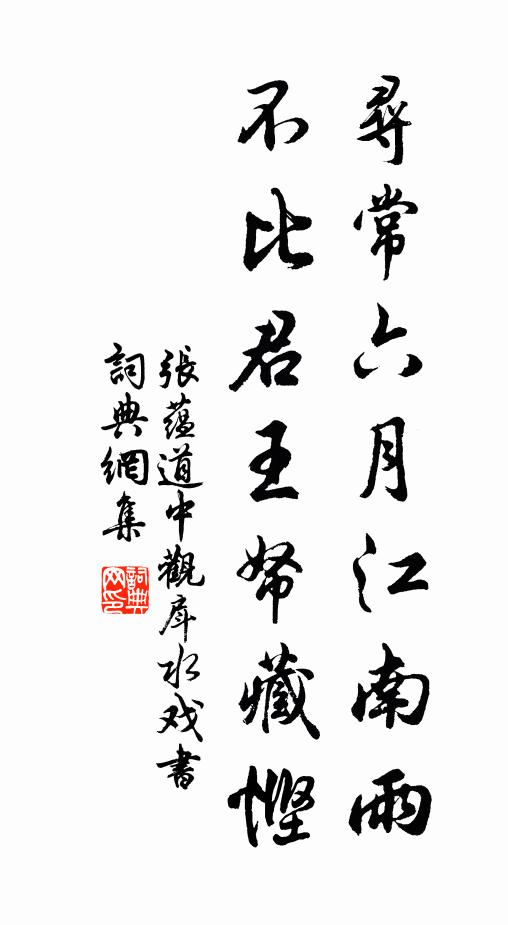 尋常六月江南雨
不比君王帑藏慳
張蘊道中觀戽水戏書
詞典網集
詞典网印